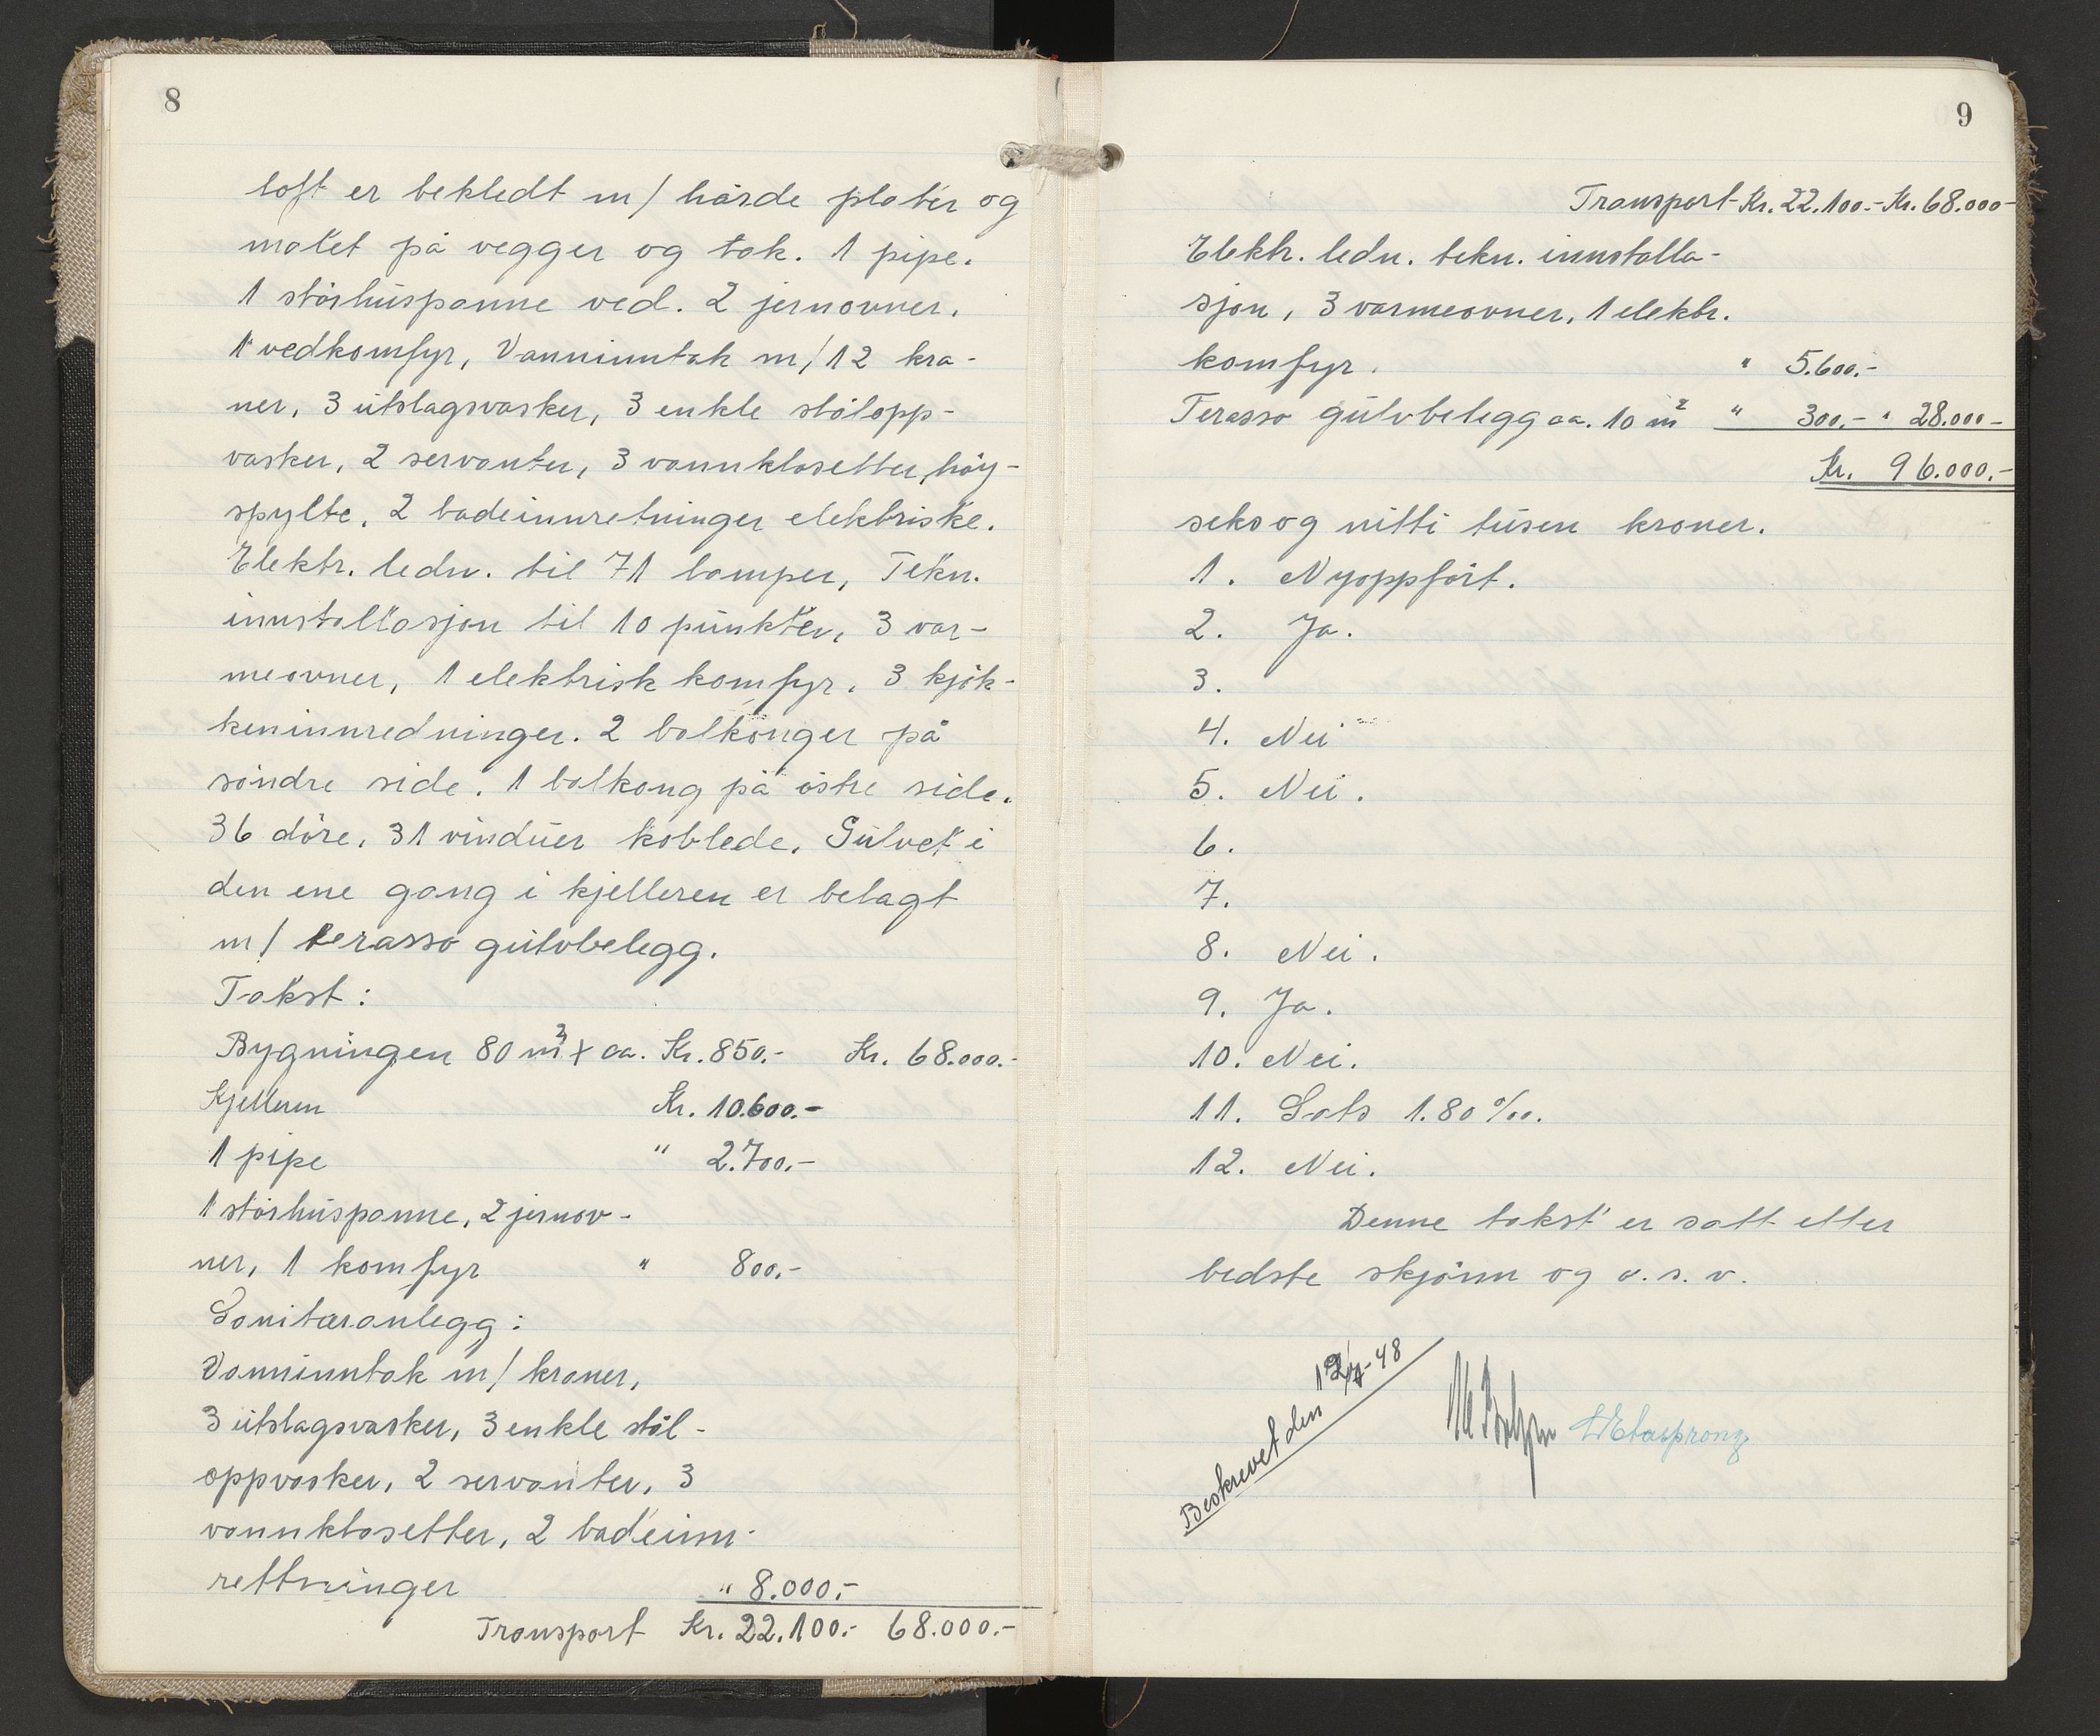 8
loft er bekledt m/ hårde plater og
malet på vegger og tak. 1 pipe.
1 størhuspanne ved. 2 jernovner,
1 vedkomfyr, Vanninntak m/12 kra-
ner, 3 utslagsvasker, 3 enkle stålopp-
vasker, 2 servanter, 3 vannklosetter, høy-
spylte, 2 badeinnretninger elektriske.
Elektr. ledn. til 71 lamper, Tekn.
innstallasjon til 10 punkter, 3 var-
meovner, 1 elektrisk komfyr. 3 kjøk-
keninnredninger. 2 balkonger på
søndre side. 1 balkong på østre side.
36 døre, 31 vinduer koblede. Gulvet i
den ene gang i kjelleren er belagt
m/ terasso gulvbelegg.
Takst:
Bygningen 80 m² x ca. Kr. 850.- Kr. 68.000.-
Kjelleren Kr. 10.600.-
1 pipe " 2.700.-
1 størhuspanne, 2 jernov-
ner, 1 komfyr " 800.-
Sanitæranlegg:
Vanninntak m/ kraner,
3 utslagsvasker, 3 enkle stål-
oppvasker, 2 servanter, 3
vannklosetter, 2 badeinn-
rettninger " 8.000.-
Transport Kr. 22.100.- 68.000.-
9
Transport Kr. 22.100.- Kr. 68.000-
Elektr. ledn. tekn. innstalla-
sjon, 3 varmeovner, 1 elektr.
komfyr. " 5.600.-
Terasso gulvbelegg ca. 10 m² " 300.- " 28.000-
Kr. 96.000.-
seks og nitti tusen kroner.
1. Nyoppført.
2. Ja.
3.
4. Nei
5. Nei.
6.
7.
8. Nei.
9. Ja.
10. Nei.
11. Sats 1.80 ‰.
12. Nei.
Denne takst er satt etter
bedste skjønn og o. s. v.
Beskrevet den 12/7-48